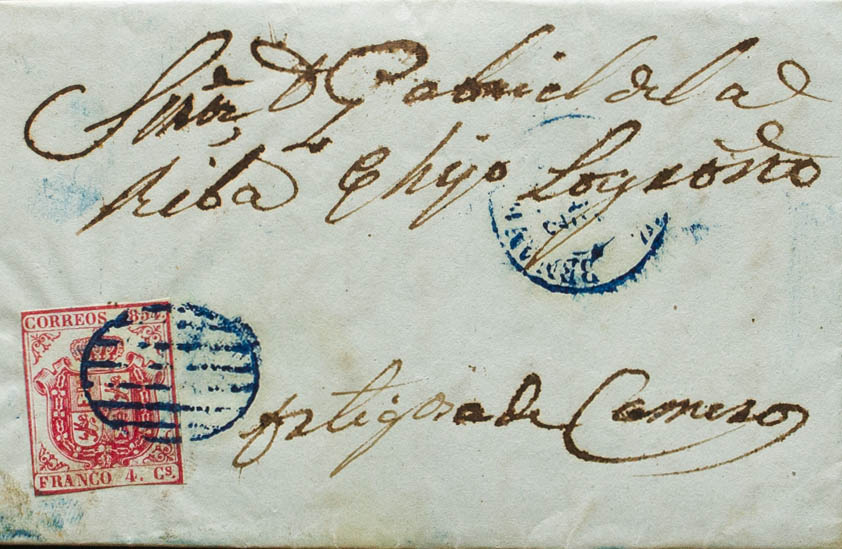 Señor Dn Gabriel de la
Riba e hijo Logroño
CORREOS 1854
FRANCO 4. Cs
Ortigosa de Camero